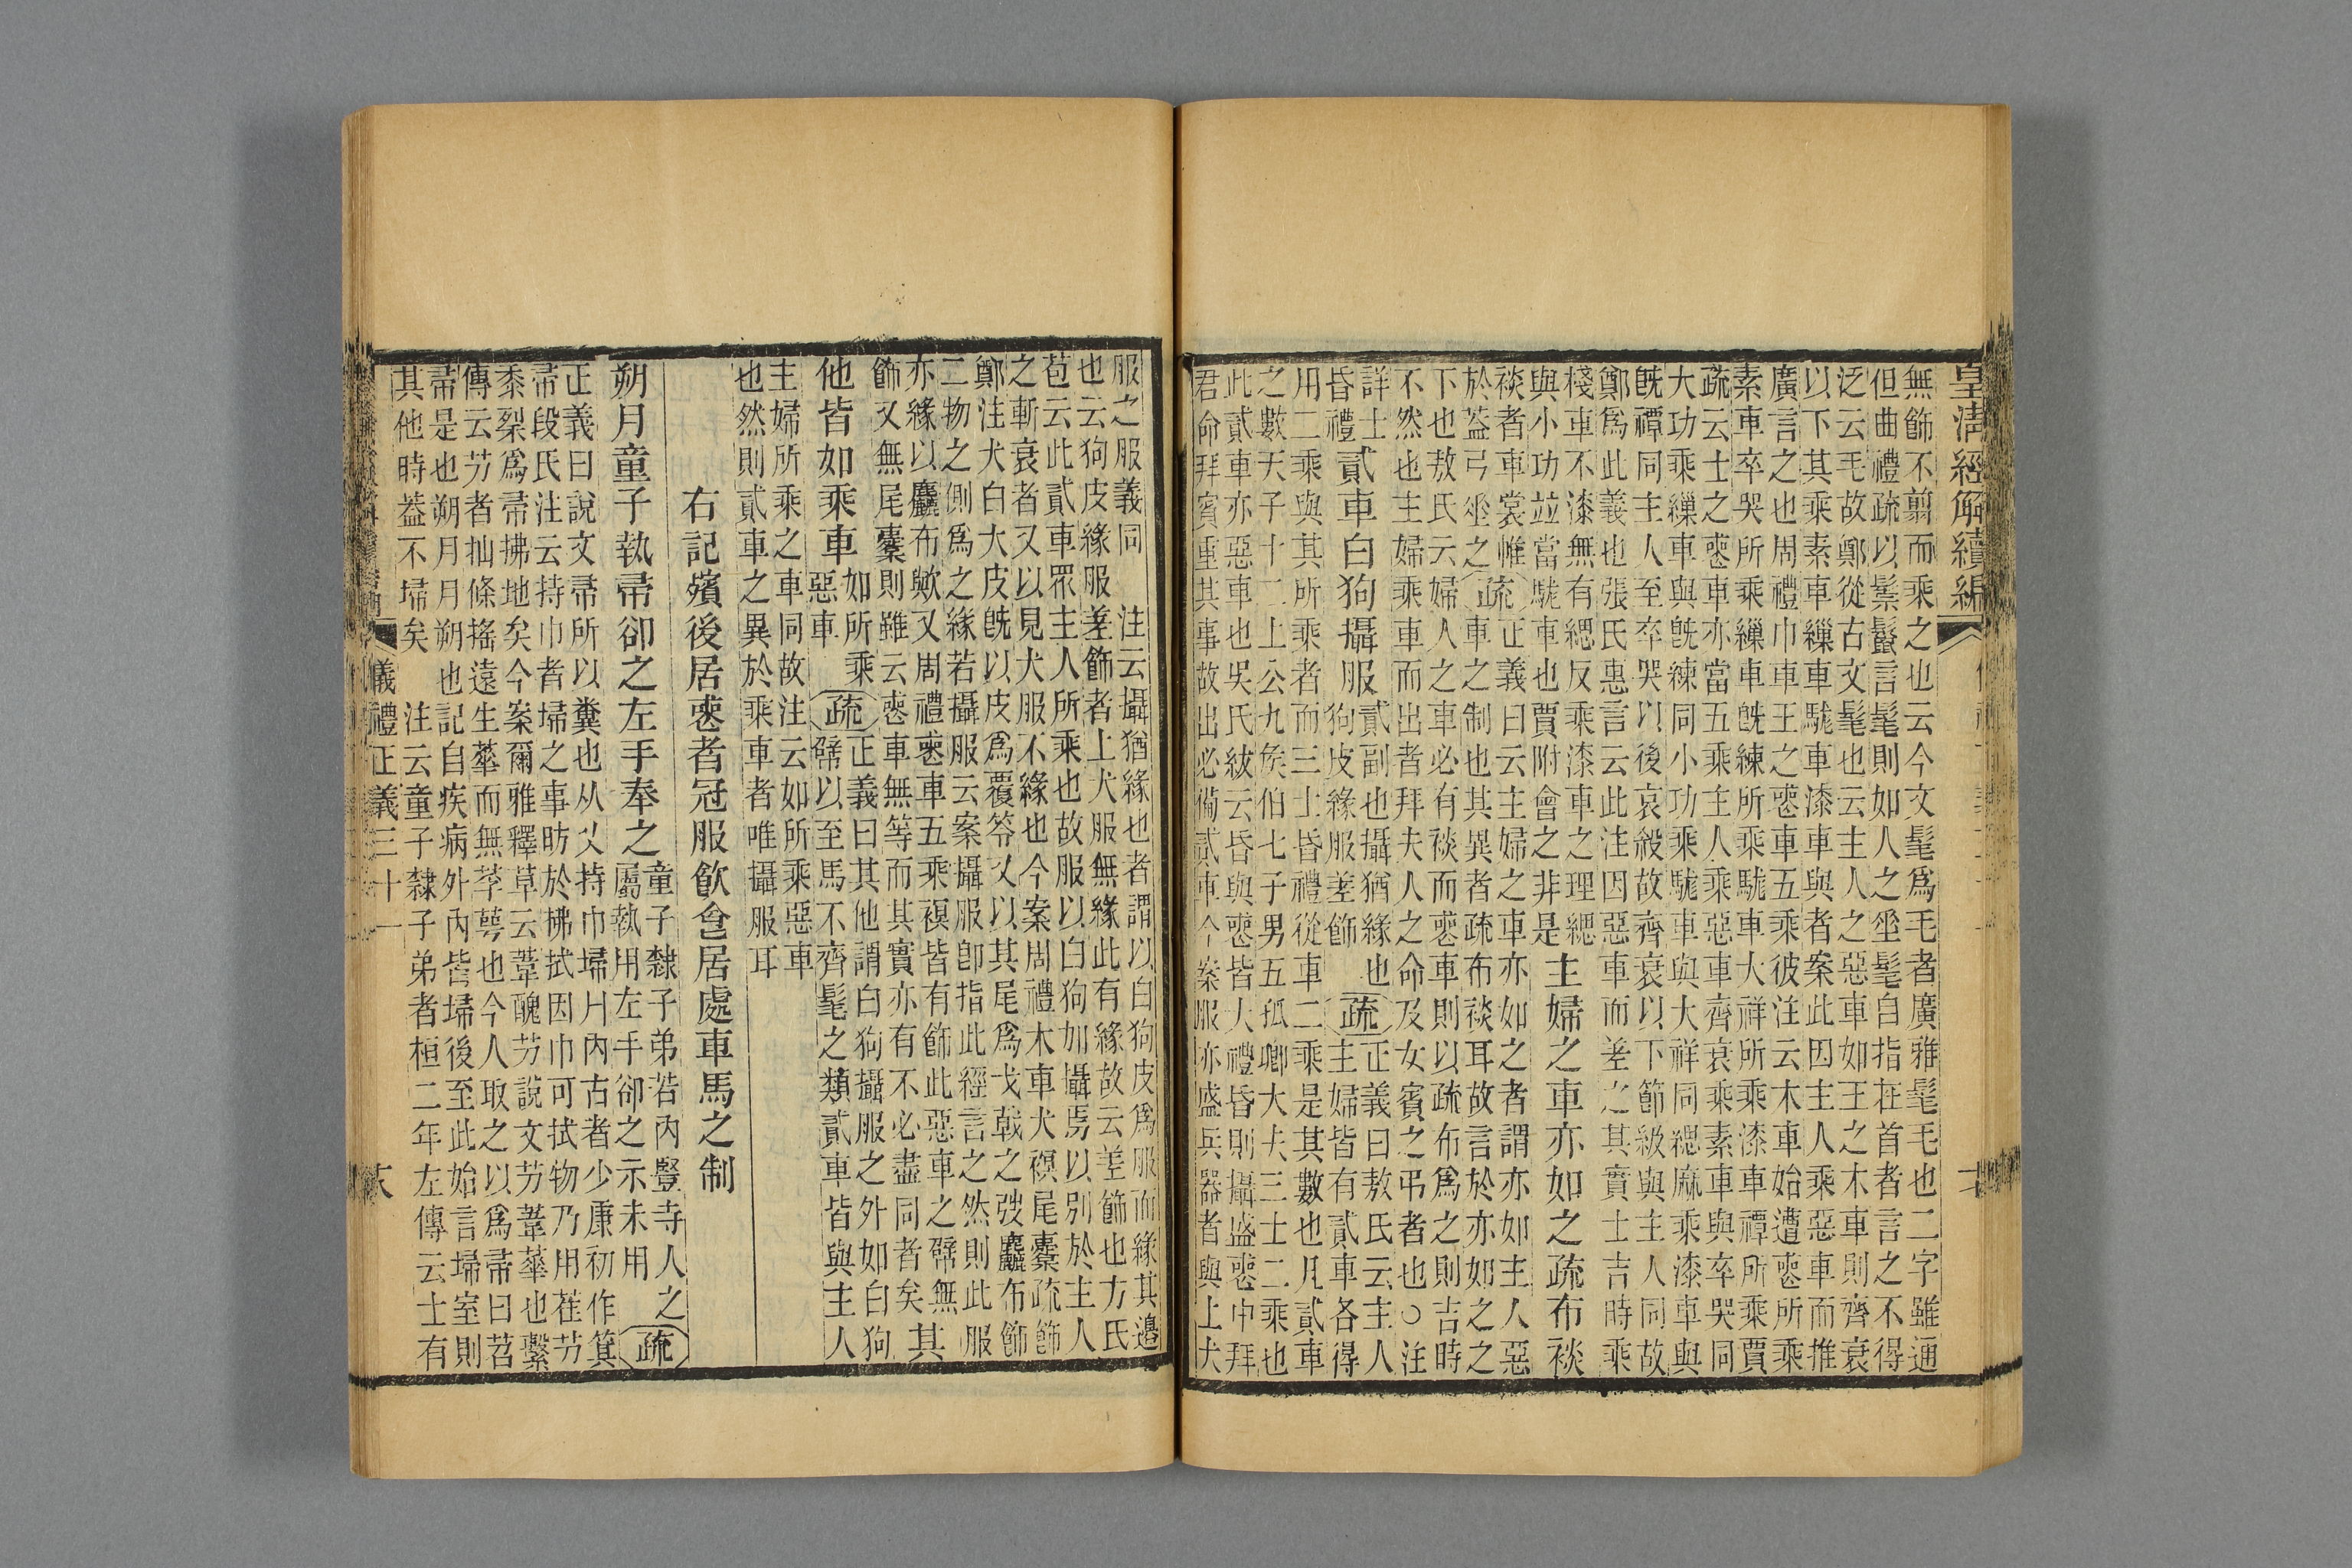 皇淸經解續編
無飾不翦而乘之也云今文髦爲毛者廣雅髦毛也二字雖通
但曲禮疏以鬃鬣言髦則如人之坐髦自指在首者言之不得
泛云毛故鄭從古文髦也云主人之惡車如王之木車則齊衰
以下其乘素車繅車駹車漆車與者案此因主人乘惡車而推
廣言之也周禮巾車王之喪車五乘彼注云木車始遭喪所乘
素車卒哭所乘繅車旣練所乘駹車大祥所乘漆車禫所乘賈
疏云士之喪車亦當五乘主人乘惡車齊衰乘素車與卒哭同
大功乘繅車與旣練同小功乘駹車與大祥同緦麻乘漆車與
旣禫同主人至卒哭以後哀殺故齊衰以下節級與主人同故
鄭爲此義也張氏惠言云此注因惡車而差之其實士吉時乘
棧車不漆無有緦反乘漆車之理緦
與小功竝當駹車也賈附會之非是
主婦之車亦如之疏布裧
裧者車裳帷
於蓋弓坐之
疏
正義曰云主婦之車亦如之者謂亦如主人惡
車之制也其異者疏布裧耳故言於亦如之之
下也敖氏云婦人之車必有裧而喪車則以疏布爲之則吉時
不然也主婦乘車而出者拜夫人之命及女賓之弔者也○注
詳士
昏禮
貳車白狗攝服
貳副也攝猶緣也
狗皮緣服差飾
疏
正義曰敖氏云主人
主婦皆有貳車各得
用二乘與其所乘者而三士昏禮從車二乘是其數也凡貳車
之數天子十二上公九侯伯七子男五孤卿大夫三士二乘也
此貳車亦惡車也吳氏紱云昏與喪皆人禮昏則攝盛喪中拜
君命拜賓重其事故出必備貳車今案服亦盛兵器者與上犬
服之服義同　注云攝猶緣也者謂以白狗皮爲服而緣其邊
也云狗皮緣服差飾者上犬服無緣此有緣故云差飾也方氏
苞云此貳車眾主人所乘也故服以白狗加攝焉以別於主人
之斬衰者又以見犬服不緣也今案周禮木車犬䙝尾櫜疏飾
鄭注犬白犬皮旣以皮爲覆笭又以其尾爲戈戟之弢麤布飾
二物之側爲之緣若攝服云案攝服卽指此經言之然則此服
亦緣以麤布歟又周禮喪車五乘䙝皆有飾此惡車之幦無
飾又無尾櫜則雖云喪車無等而其實亦有不必盡同者矣其
他皆如乘車
如所乘
惡車
疏
正義曰其他謂白狗攝服之外如白狗
幦以至馬不齊髦之類貳車皆與主人
主婦所乘之車同故注云如所乘惡車
也然則貳車之異於乘車者唯攝服耳
右記殯後居喪者冠服飮食居處車馬之制
朔月童子執帚卻之左手奉之
童子隸子弟若內豎寺人之
屬執用左手卻之示未用
疏
正義曰說文帚所以糞也从又持巾埽冂內古者少康初作箕
帚段氏注云持巾者埽之事昉於拂拭因巾可拭物乃用茬艻
黍梨爲帚拂地矣今案爾雅釋草云葦醜艻說文艻葦華也繫
傳云艻者抽條搖遠生華而無莩萼也今人取之以爲帚曰苕
帚是也朔月月朔也記自疾病外內皆埽後至此始言埽室則
其他時蓋不埽矣　注云童子隸子弟者桓二年左傳云士有
儀禮正義三十一